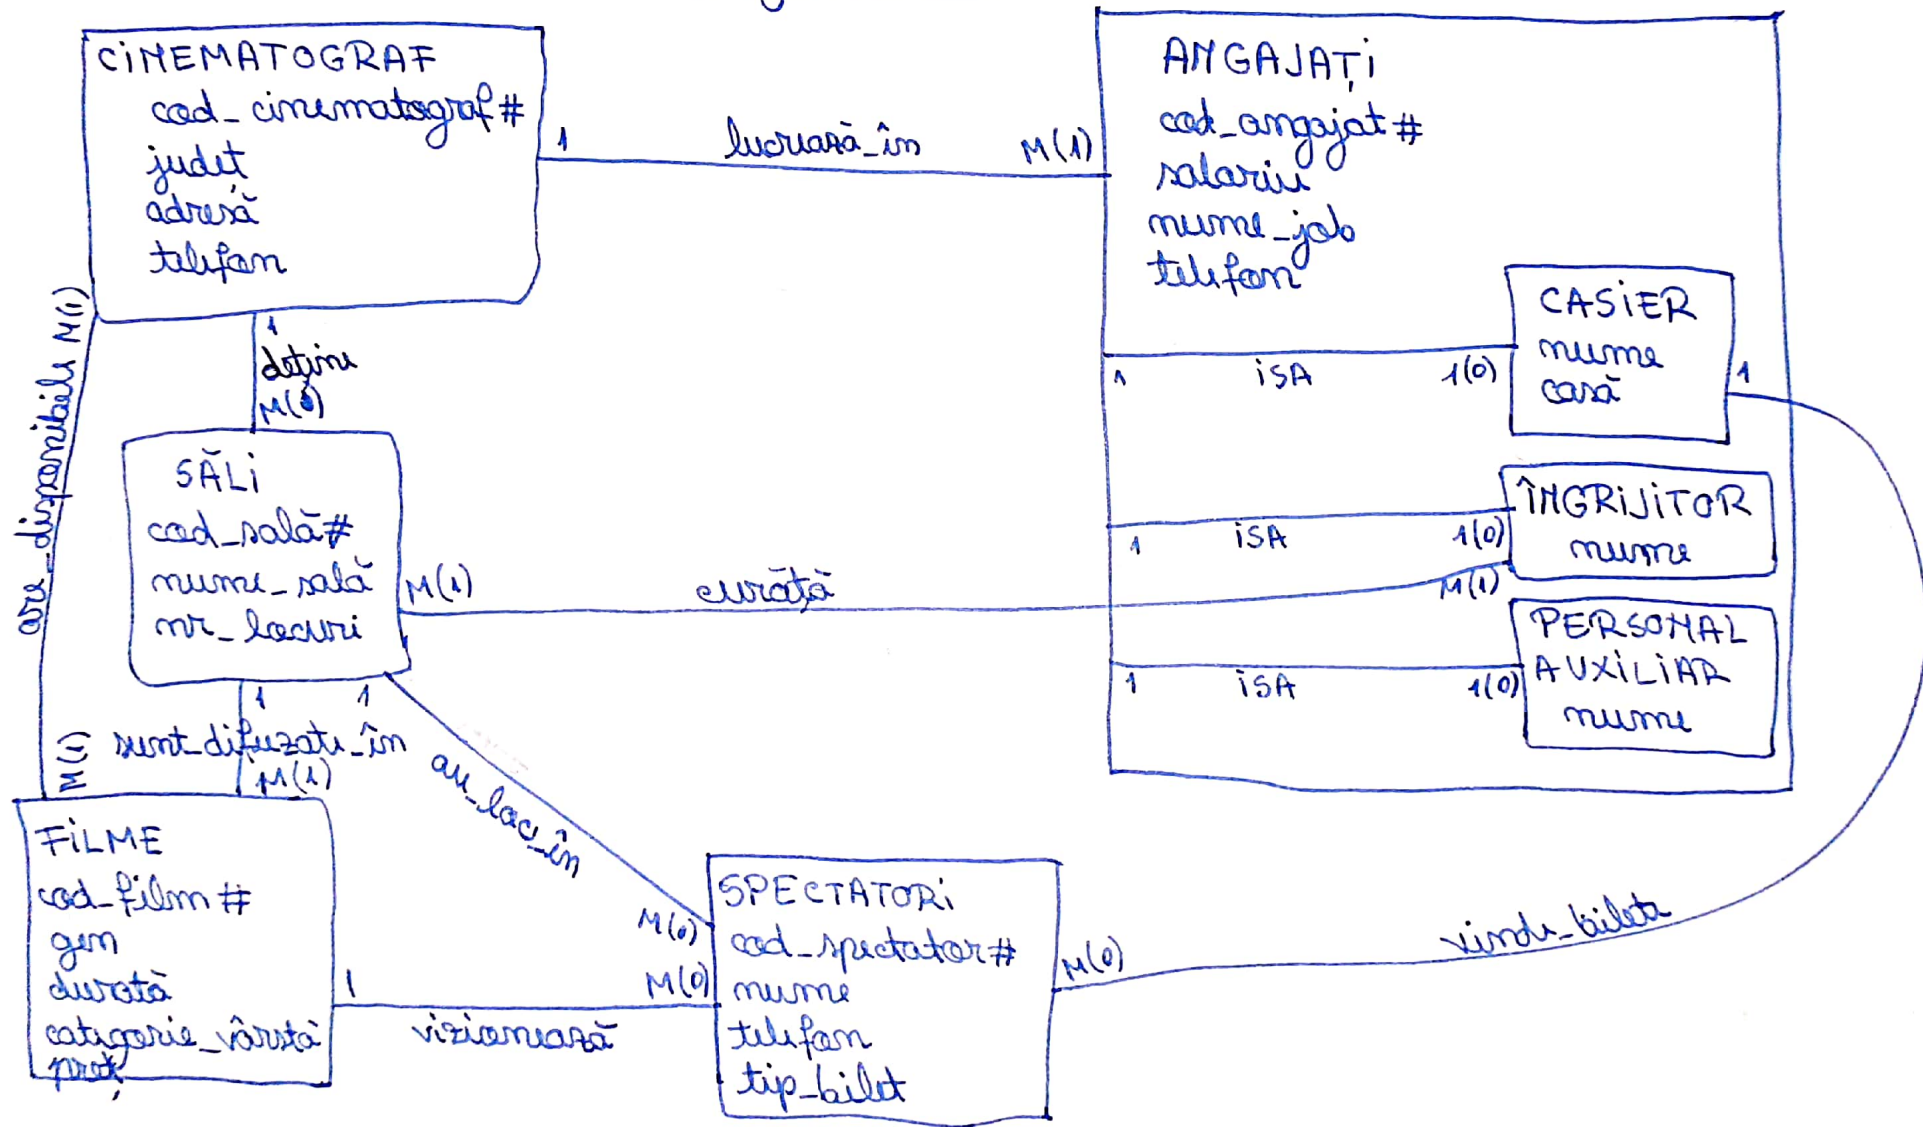 CINEMATOGRAF
cod_cinematograf#
județ
adresă
telefon
1
lucrează_în
M(1)
ANGAJAȚI
cod_angajat#
salariu
nume_job
telefon
1
ISA
1(0)
CASIER
nume
casă
1
1
ISA
1(0)
ÎNGRIJITOR
nume
1
ISA
1(0)
PERSONAL
AUXILIAR
nume
1
deține
are_disponibile
M(1)
M(1)
SĂLI
cod_sală#
nume_sală
nr_locuri
M(1)
curăță
M(1)
1
sunt_difuzate_în
M(1)
1
au_loc_în
M(0)
FILME
cod_film#
gen
durată
categorie_vârstă
preț
1
vizionează
M(0)
SPECTATORI
cod_spectator#
nume
telefon
tip_bilet
M(0)
vinde_bilete